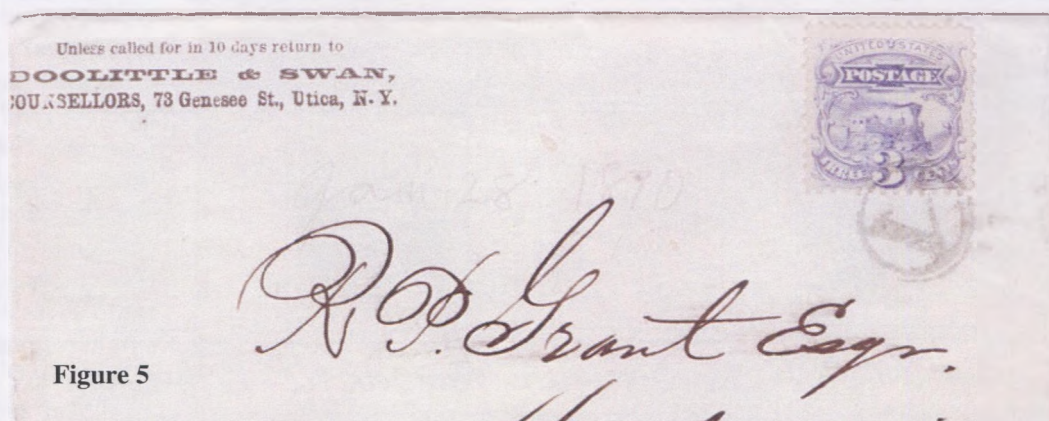 Unless called for in 10 days return to
DOOLITTLE & SWAN,
COUNSELLORS, 73 Genesee St., Utica, N. Y.
UNITED STATES
POSTAGE
THREE 3 CENTS
Jan 28 1870
R. P. Grant Esqr.
Figure 5